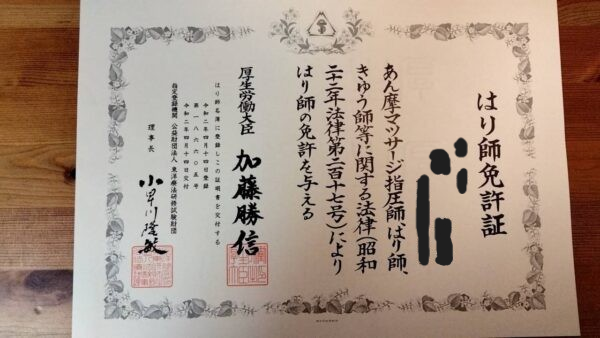 はり師免許証
あん摩マツサージ指圧師、はり師、
きゆう師等に関する法律(昭和
二十二年法律第二百十七号)により
はり師の免許を与える
厚生労働大臣 加藤勝信
はり師名簿に登録しこの証明書を交付する
令和二年四月十四日登録
第一八六六〇五号
令和二年四月十四日交付
指定登録機関 公益財団法人 東洋療法研修試験財団
理事長 小早川隆敏